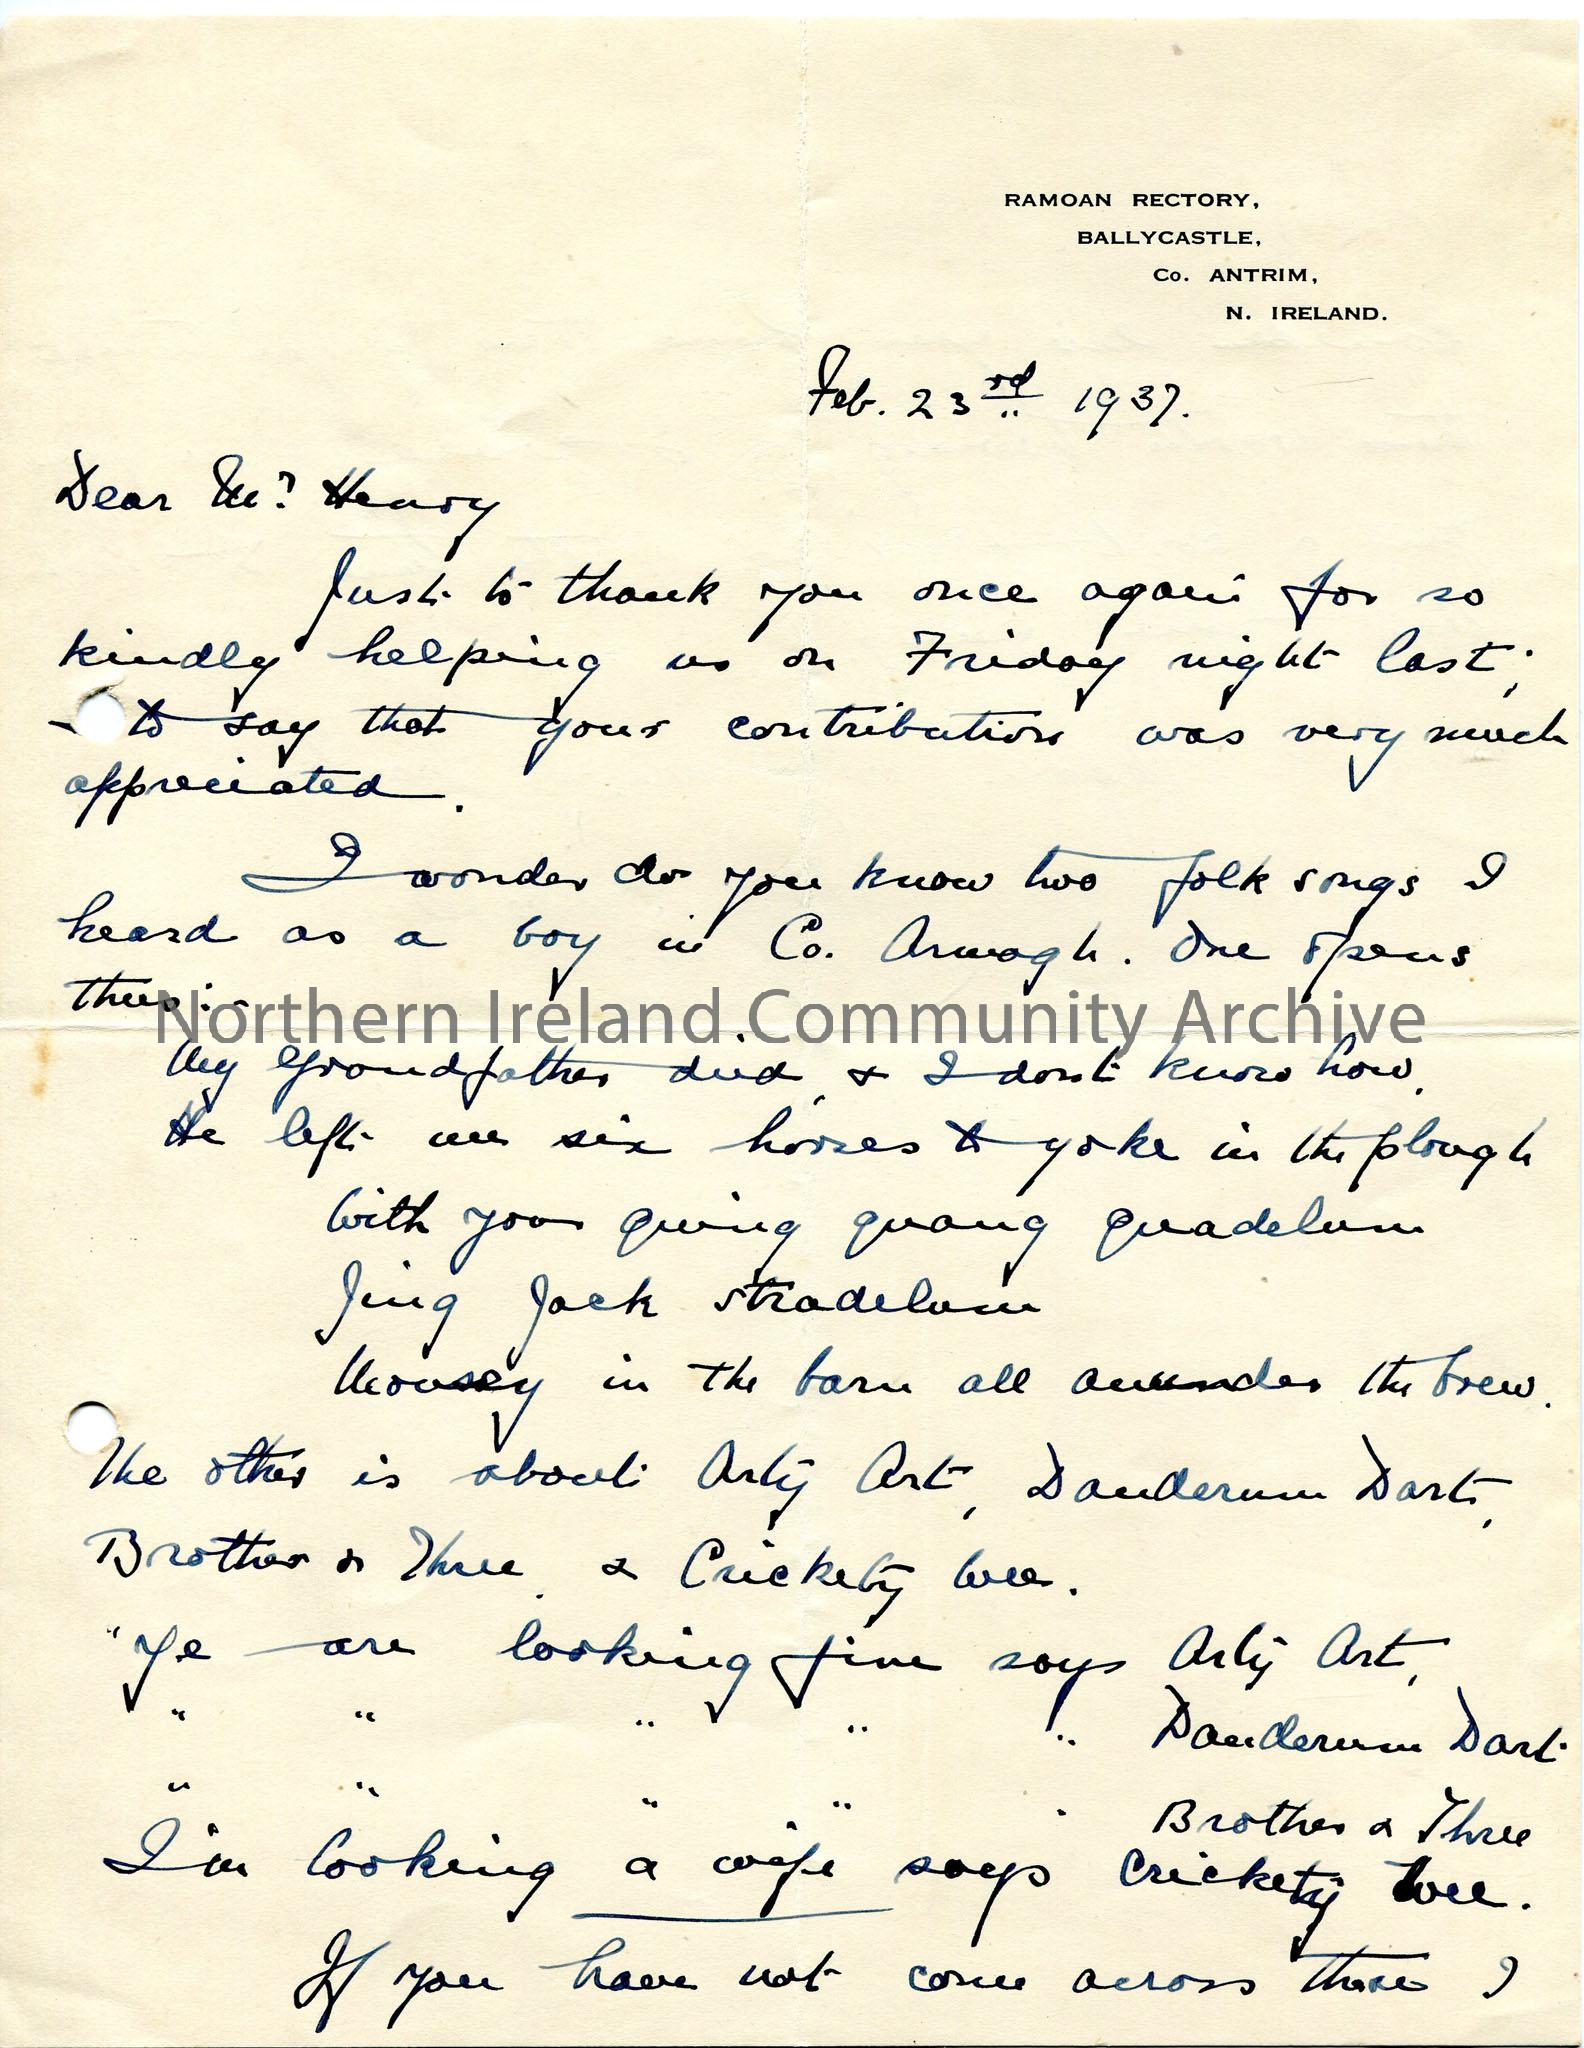 RAMOAN RECTORY,
BALLYCASTLE,
Co. ANTRIM,
N. IRELAND.
Feb. 23rd 1937.
Dear Mr Henry
Just to thank you once again for so
kindly helping us on Friday night last;
to say that your contribution was very much
appreciated.
I wonder do you know two folk songs I
heard as a boy in Co. Armagh. One opens
thus:-
Northern Ireland Community Archive
My Grandfather died, & I dont know how,
He left me six horses to yoke in the plough
With your quing quang quadelum
Jing Jack stradelum
Mousey in the barn all amunder the brew.
The other is about Arty Art, Danderum Dart,
Brother & Three, & Crickety Wee.
"Ye are looking fine says Arty Art,
" " " " " Danderum Dart
" " " " " Brother & Three
I'm looking a wife says Crickety Wee.
If you have not come across these I